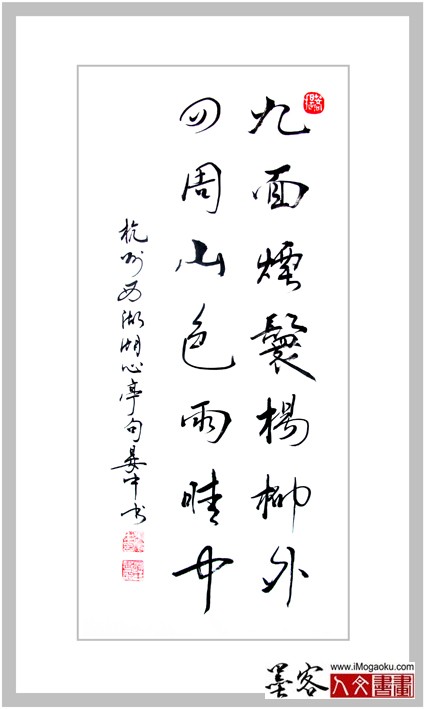 九面煙鬟楊柳外
四周山色雨晴中
杭州西湖湖心亭句晏中书
墨客
www.iMogaoku.com
人文書畫